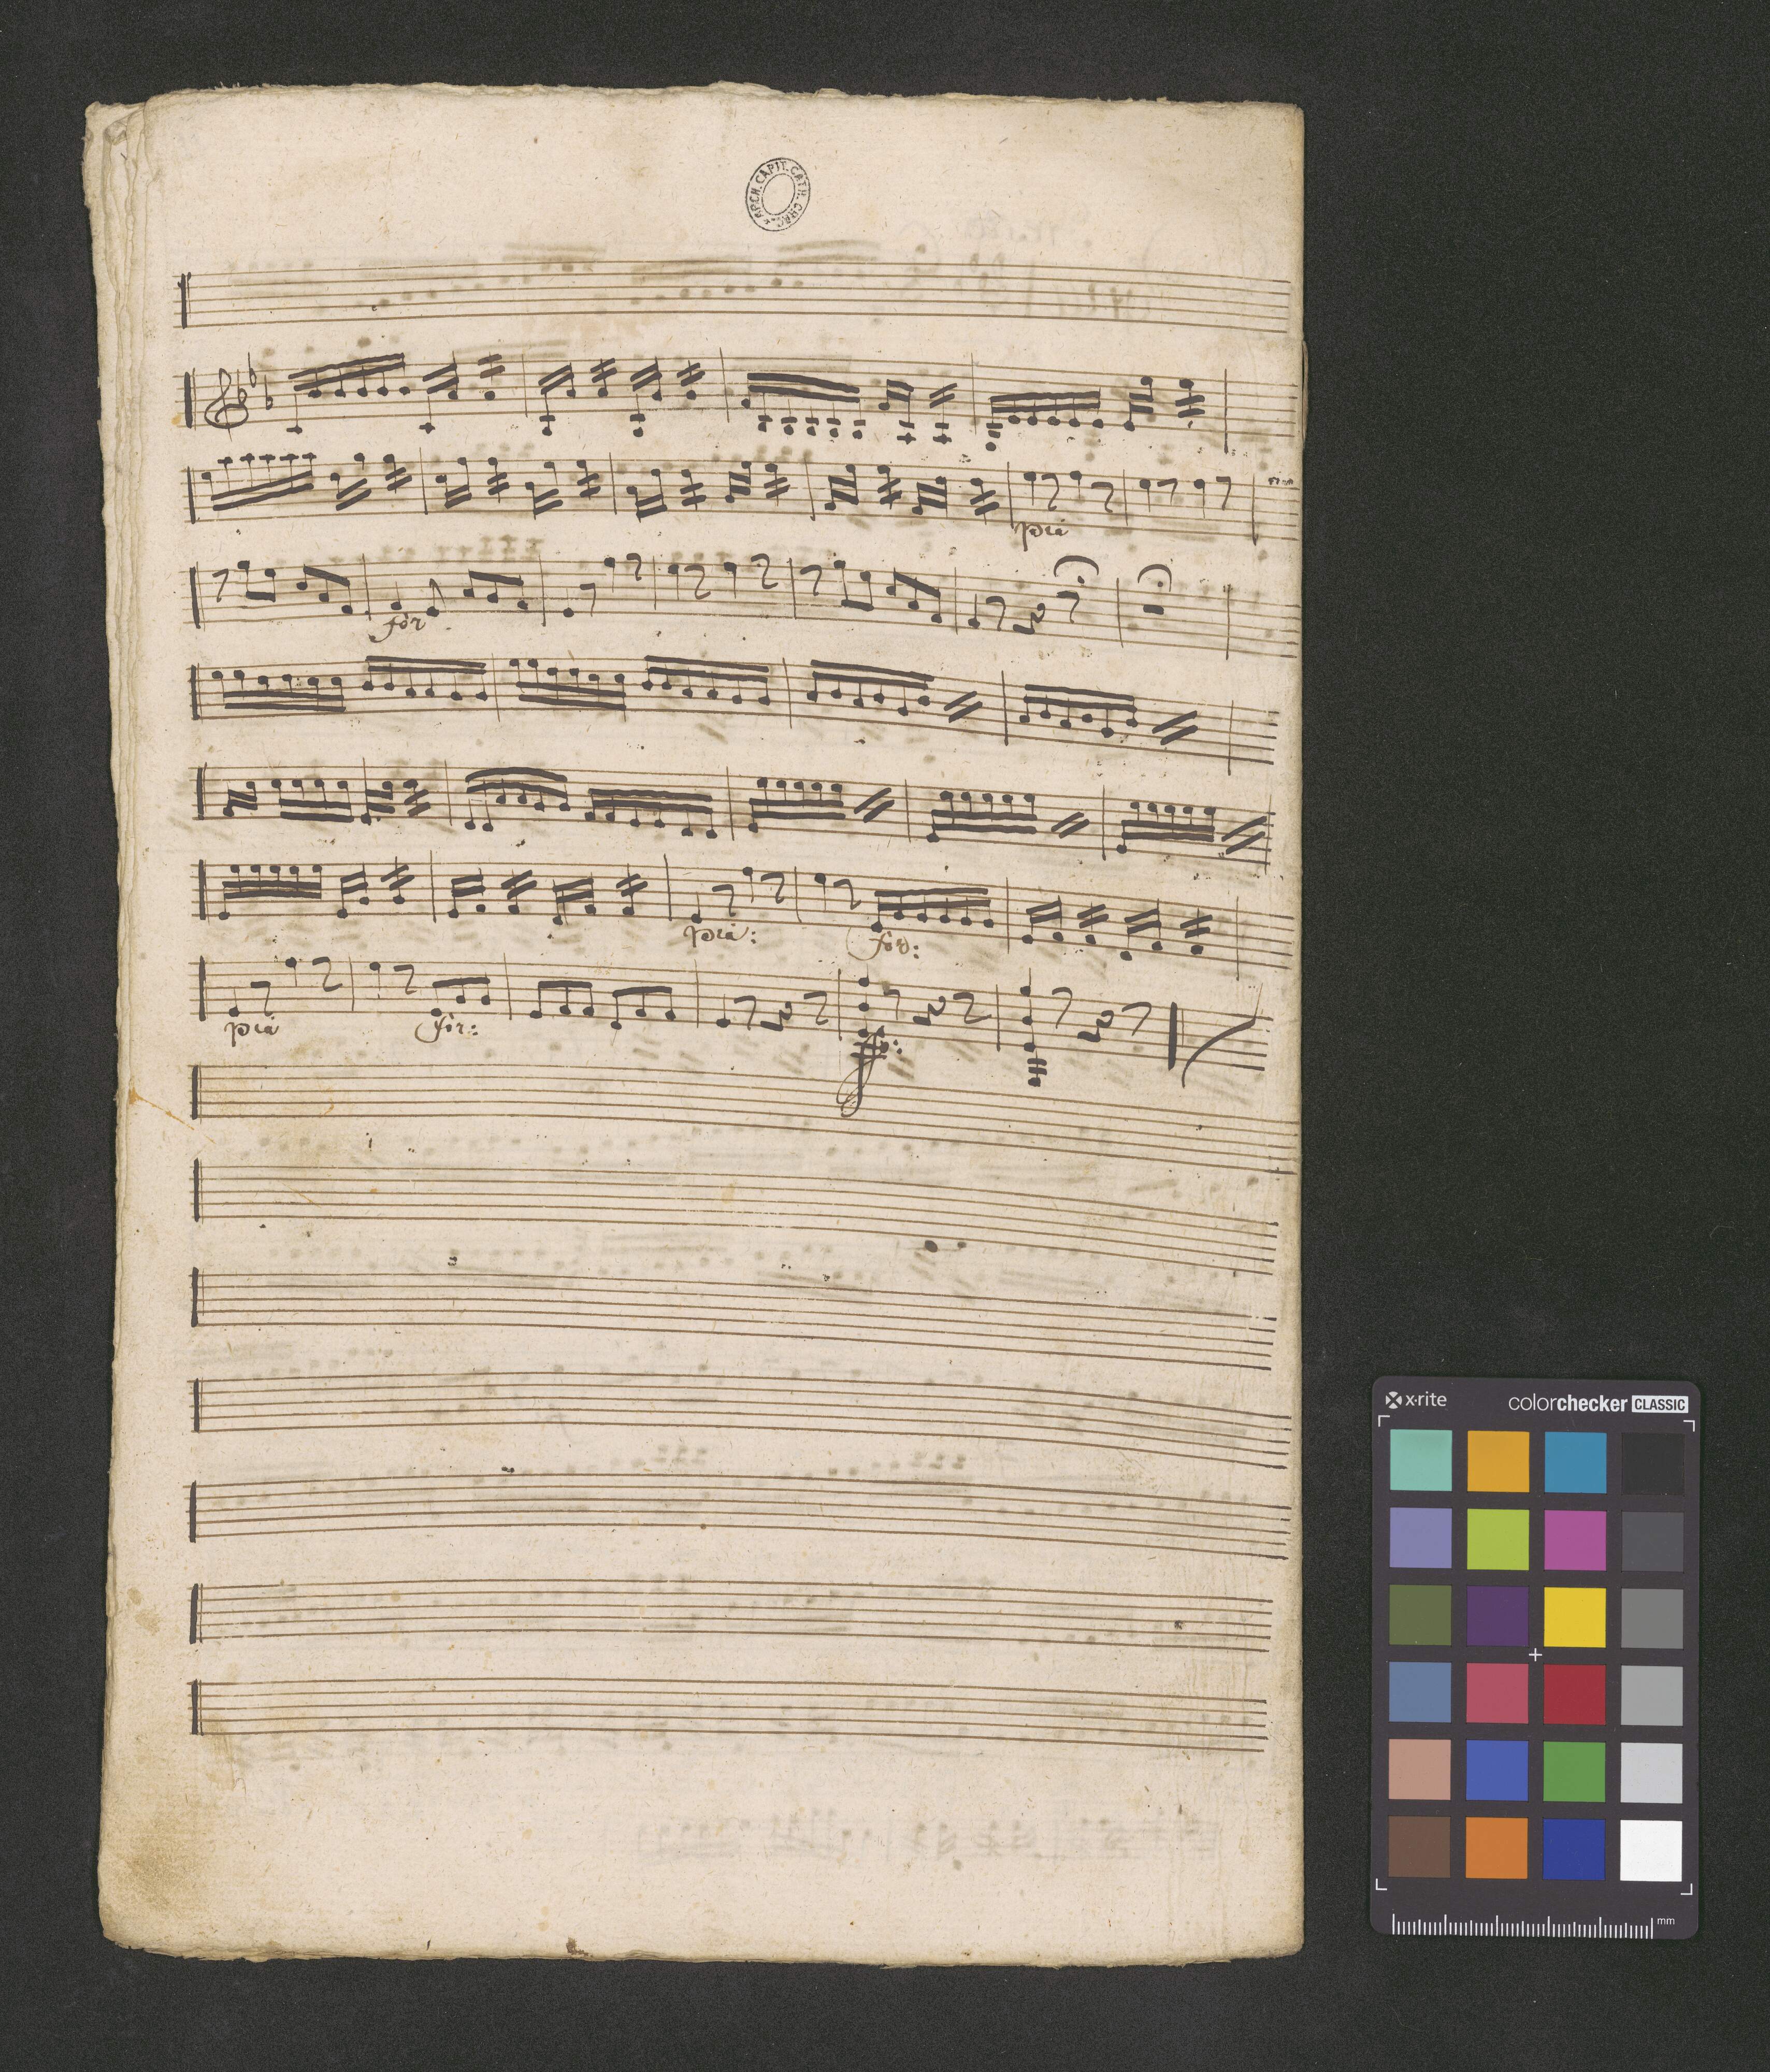 ARCH. CAPIT. CATH. CRAC.
pia
for
pia:
for:
pia
for:
fp:
x-rite
colorchecker CLASSIC
mm